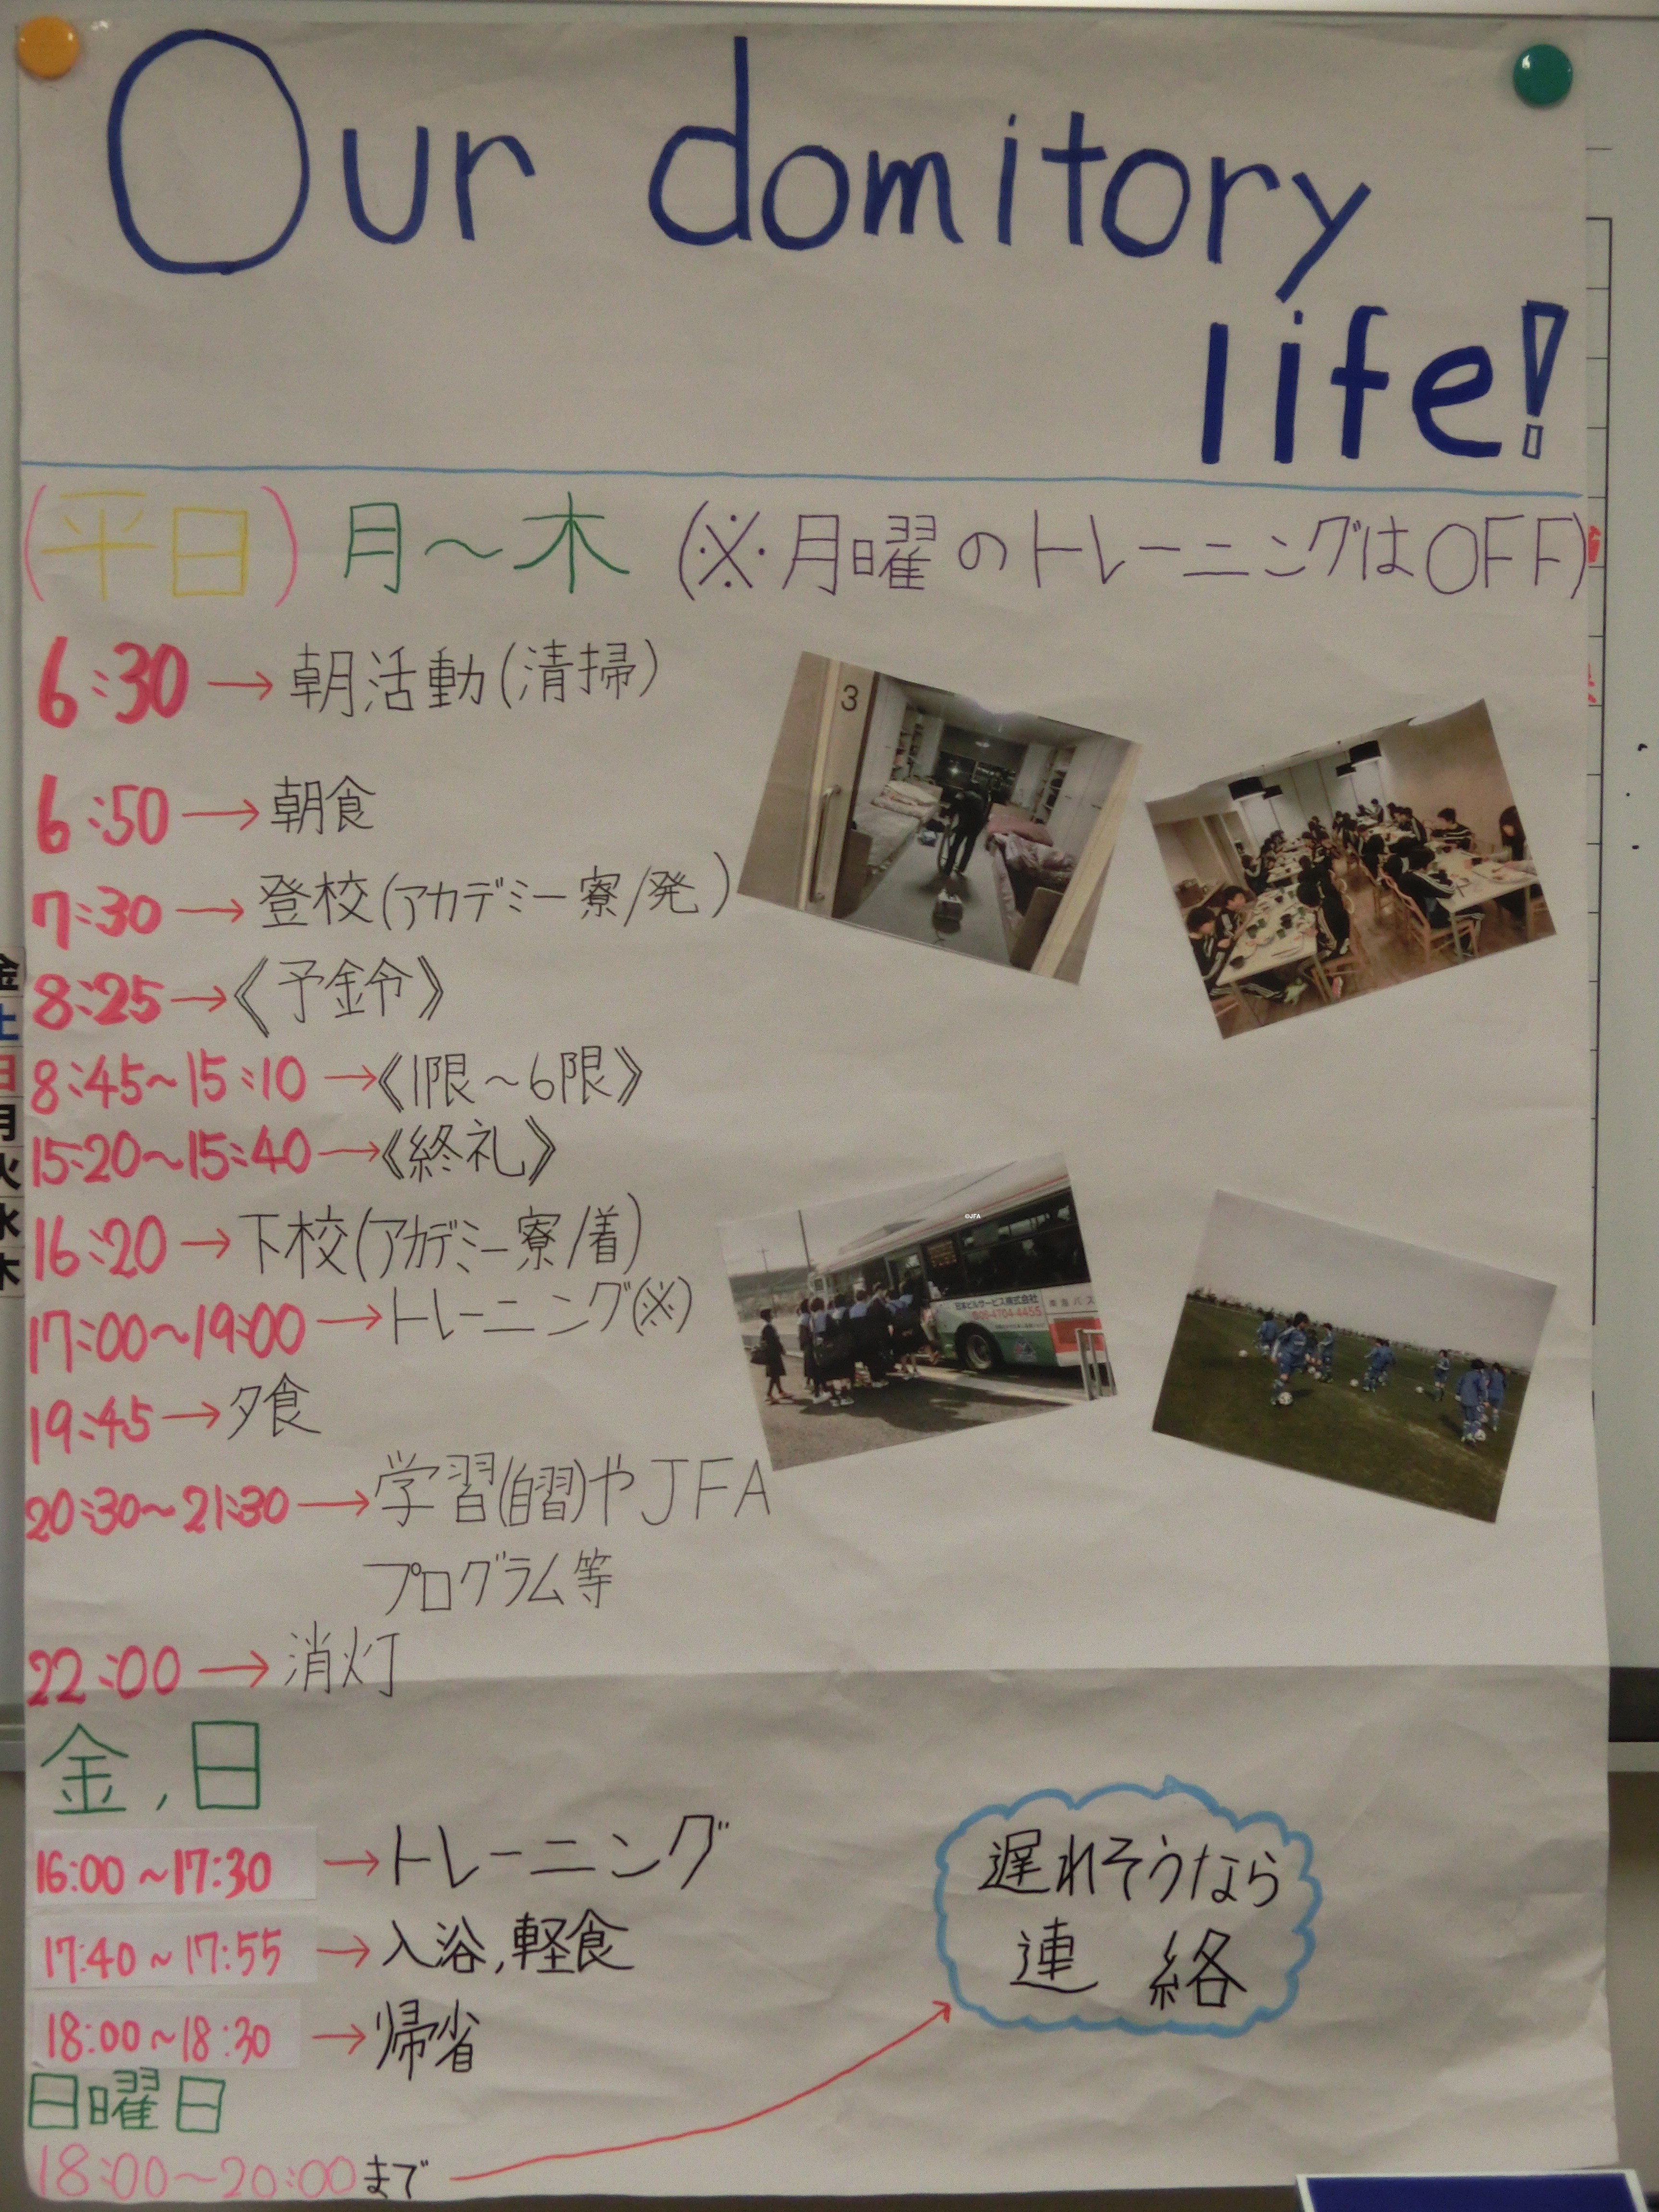 Our domitory
life!
(平日) 月〜木 (※月曜のトレーニングはOFF)
6:30→朝活動(清掃)
6:50→朝食
7:30→登校(アカデミー寮/発)
8:25→《予金令》
8:45~15:10→《1限~6限》
15:20~15:40→《終礼》
16:20→下校(アカデミー寮/着)
17:00~19:00→トレーニング(※)
19:45→夕食
20:30~21:30→学習(自習)やJFA
プログラム等
22:00→消灯
金,日
16:00~17:30→トレーニング
17:40~17:55→入浴,軽食
18:00~18:30→帰省
日曜日
18:00~20:00まで
遅れそうなら
連絡
3
©JFA
日本ビルサービス株式会社
金
土
日
月
火
水
木